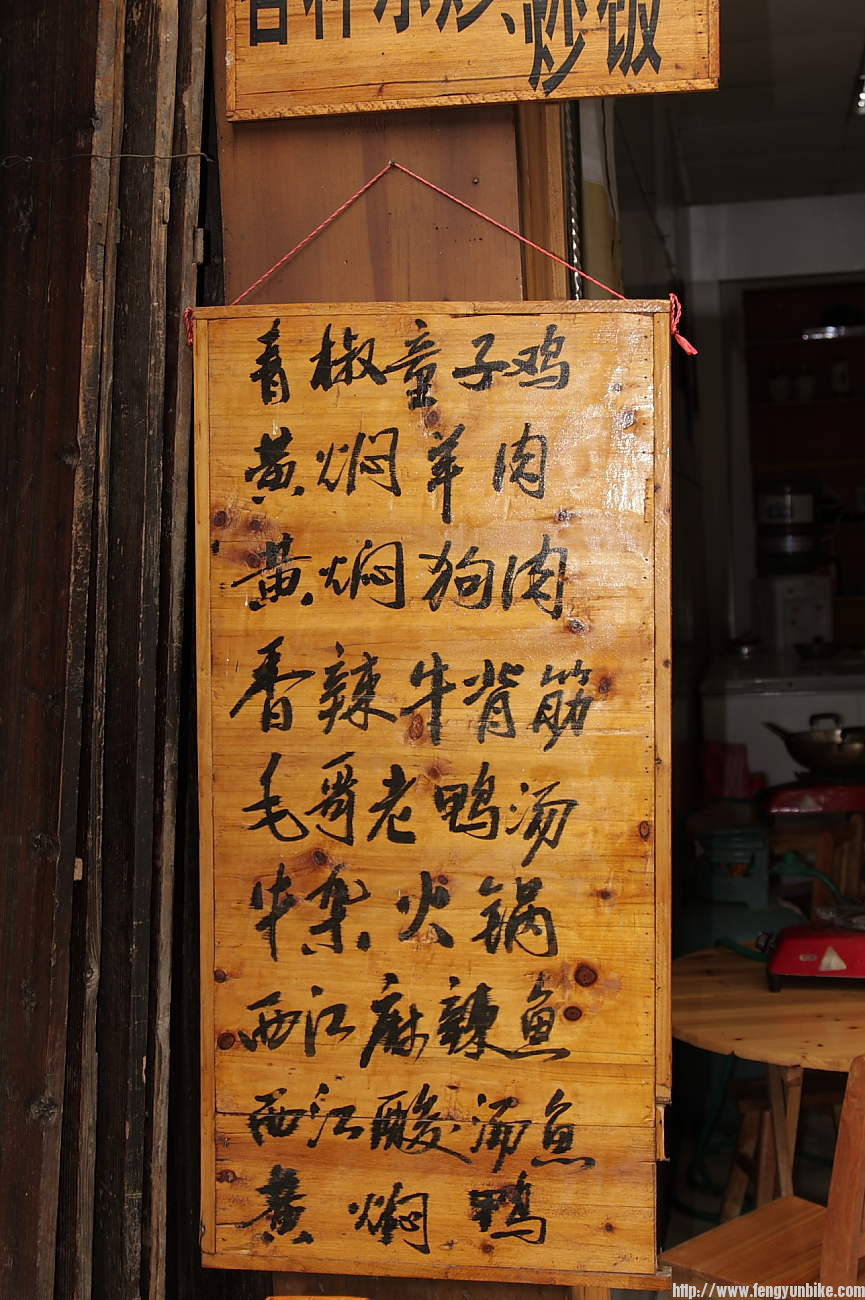 各种小炒、炒饭
青椒童子鸡
黄焖羊肉
黄焖狗肉
香辣牛背筋
毛哥老鸭汤
牛杂火锅
西江麻辣鱼
西江酸汤鱼
黄焖鸭
http://www.fengyunbike.com